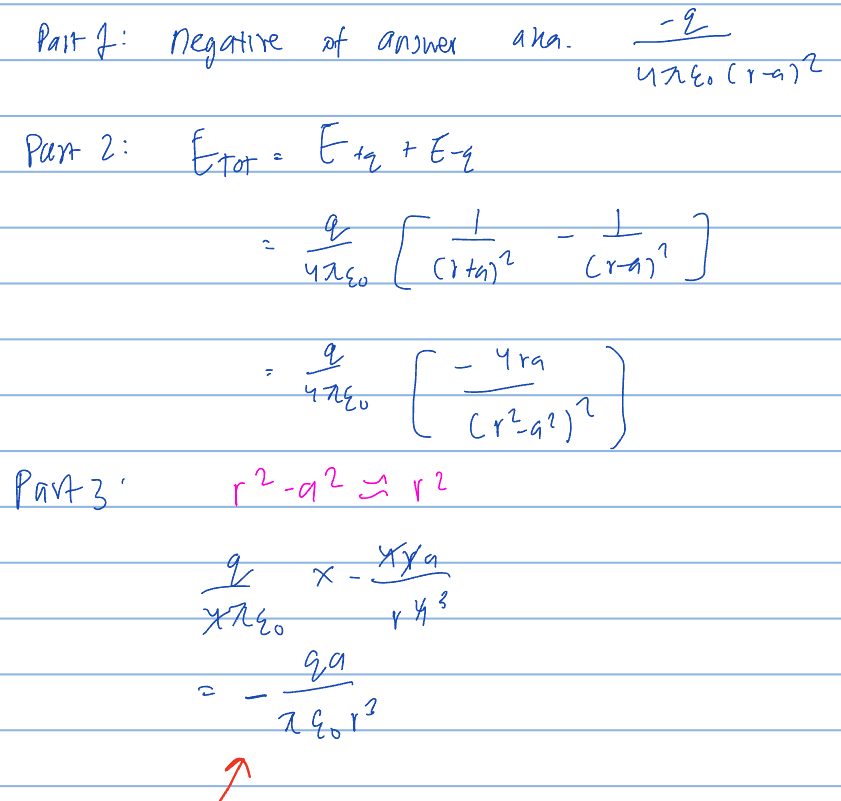 Part 1: negative of answer aka. -q / 4πε₀(r-a)²
Part 2: E_TOT = E_+q + E_-q
= q/4πε₀ [ 1/(r+a)² - 1/(r-a)² ]
= q/4πε₀ [ - 4ra/(r²-a²)² ]
Part 3: r²-a² ≈ r²
q/4πε₀ x - 4ra/r⁴ ³
= - qa/πε₀r³